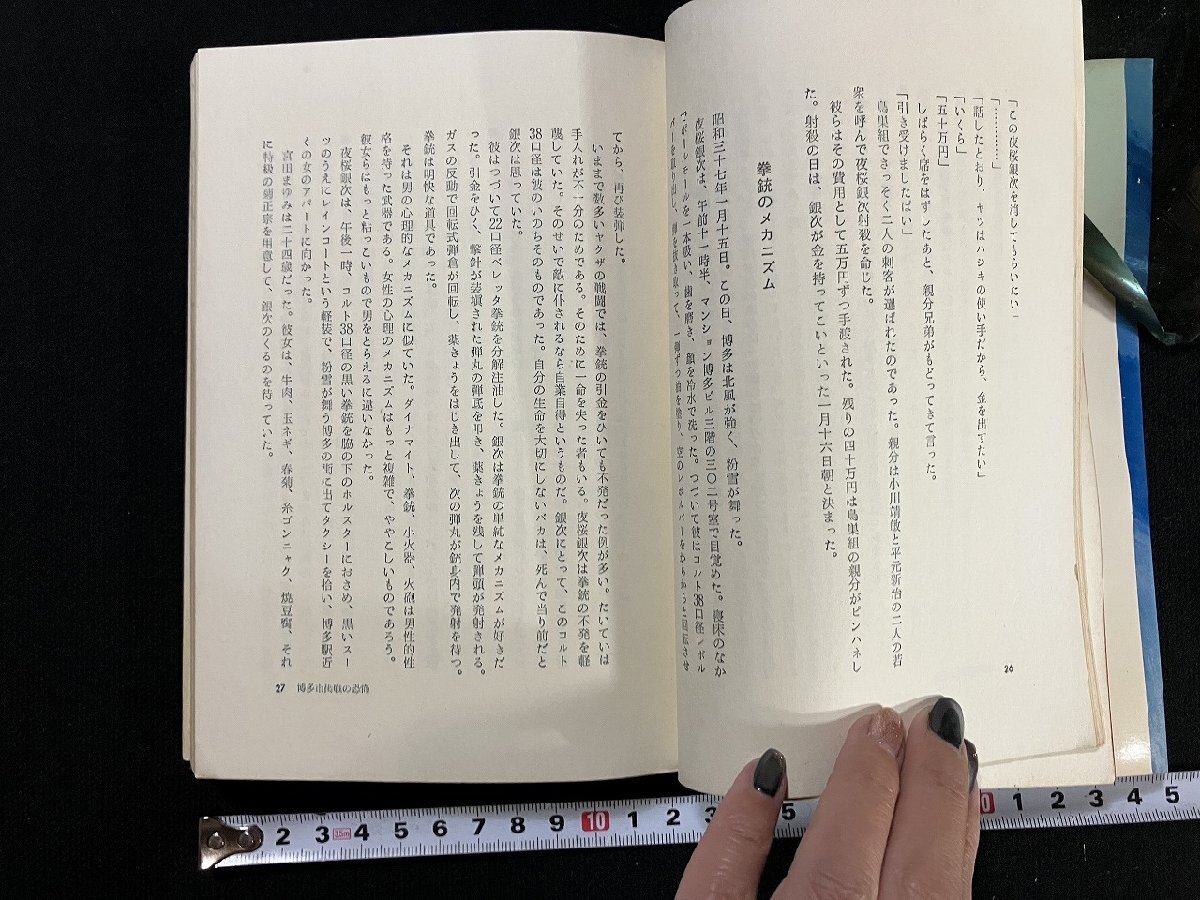 「この夜桜銀次を消してもらいたい」
「…………」
「話したとおり、ヤツはハジキの使い手だから、金を出でたい」
「いくら」
「五十万円」
しばらく席をはずしたあと、親分兄弟がもどってきて言った。
「引き受けましたばい」
鳥巣組でさっそく二人の刺客が選ばれたのであった。親分は小川靖敏と平元新治の二人の若
衆を呼んで夜桜銀次射殺を命じた。
彼らはその費用として五万円ずつ手渡された。残りの四十万円は鳥巣組の親分がピンハネし
た。射殺の日は、銀次が金を持ってこいといった一月十六日朝と決まった。
拳銃のメカニズム
昭和三十七年一月十五日。この日、博多は北風が強く、粉雪が舞った。
夜桜銀次は、午前十一時半、マンション博多ビル三階の三〇二号室で目覚めた。寝床のなか
を一本吸い、歯を磨き、顔を冷水で洗った。つづいて彼はコルト38口径レボル
バーを取り出し、弾を抜き取って、一弾ずつ油を塗り、空のレボルバーを
26
てから、再び装弾した。
いままで数多いヤクザの戦闘では、拳銃の引金をひいても不発だった例が多い。たいていは
手入れが不十分のためである。そのために一命を失った者もいる。夜桜銀次は拳銃の不発を軽
蔑していた。そのせいで敵に仆されるなら自業自得というものだ。銀次にとって、このコルト
38口径は彼のいのちそのものであった。自分の生命を大切にしないバカは、死んで当り前だと
銀次は思っていた。
彼はつづいて22口径ベレッタ拳銃を分解注油した。銀次は拳銃の単純なメカニズムが好きだ
った。引金をひく、撃針が装塡された弾丸の弾底を叩き、薬きょうを残して弾頭が発射される。
ガスの反動で回転式弾倉が回転し、薬きょうをはじき出して、次の弾丸が銃身内で発射を待つ。
拳銃は明快な道具であった。
それは男の心理的なメカニズムに似ていた。ダイナマイト、拳銃、小火器、火砲は男性的性
格を持った武器である。女性の心理のメカニズムはもっと複雑で、ややこしいものであろう。
彼女らはもっと粘っこいもので男をとらえるに違いなかった。
夜桜銀次は、午後一時、コルト38口径の黒い拳銃を脇の下のホルスターにおさめ、黒いスー
ツのうえにレインコートという軽装で、粉雪が舞う博多の街に出てタクシーを拾い、博多駅近
くの女のアパートに向かった。
宮田まゆみは二十四歳だった。彼女は、牛肉、玉ネギ、春菊、糸ゴンニャク、焼豆腐、それ
に特級の菊正宗を用意して、銀次のくるのを待っていた。
27 博多市街戦の恐怖
2 3 15m 4 5 6 7 8 9 10 1 2 3 5 0 1 2 3 4 5